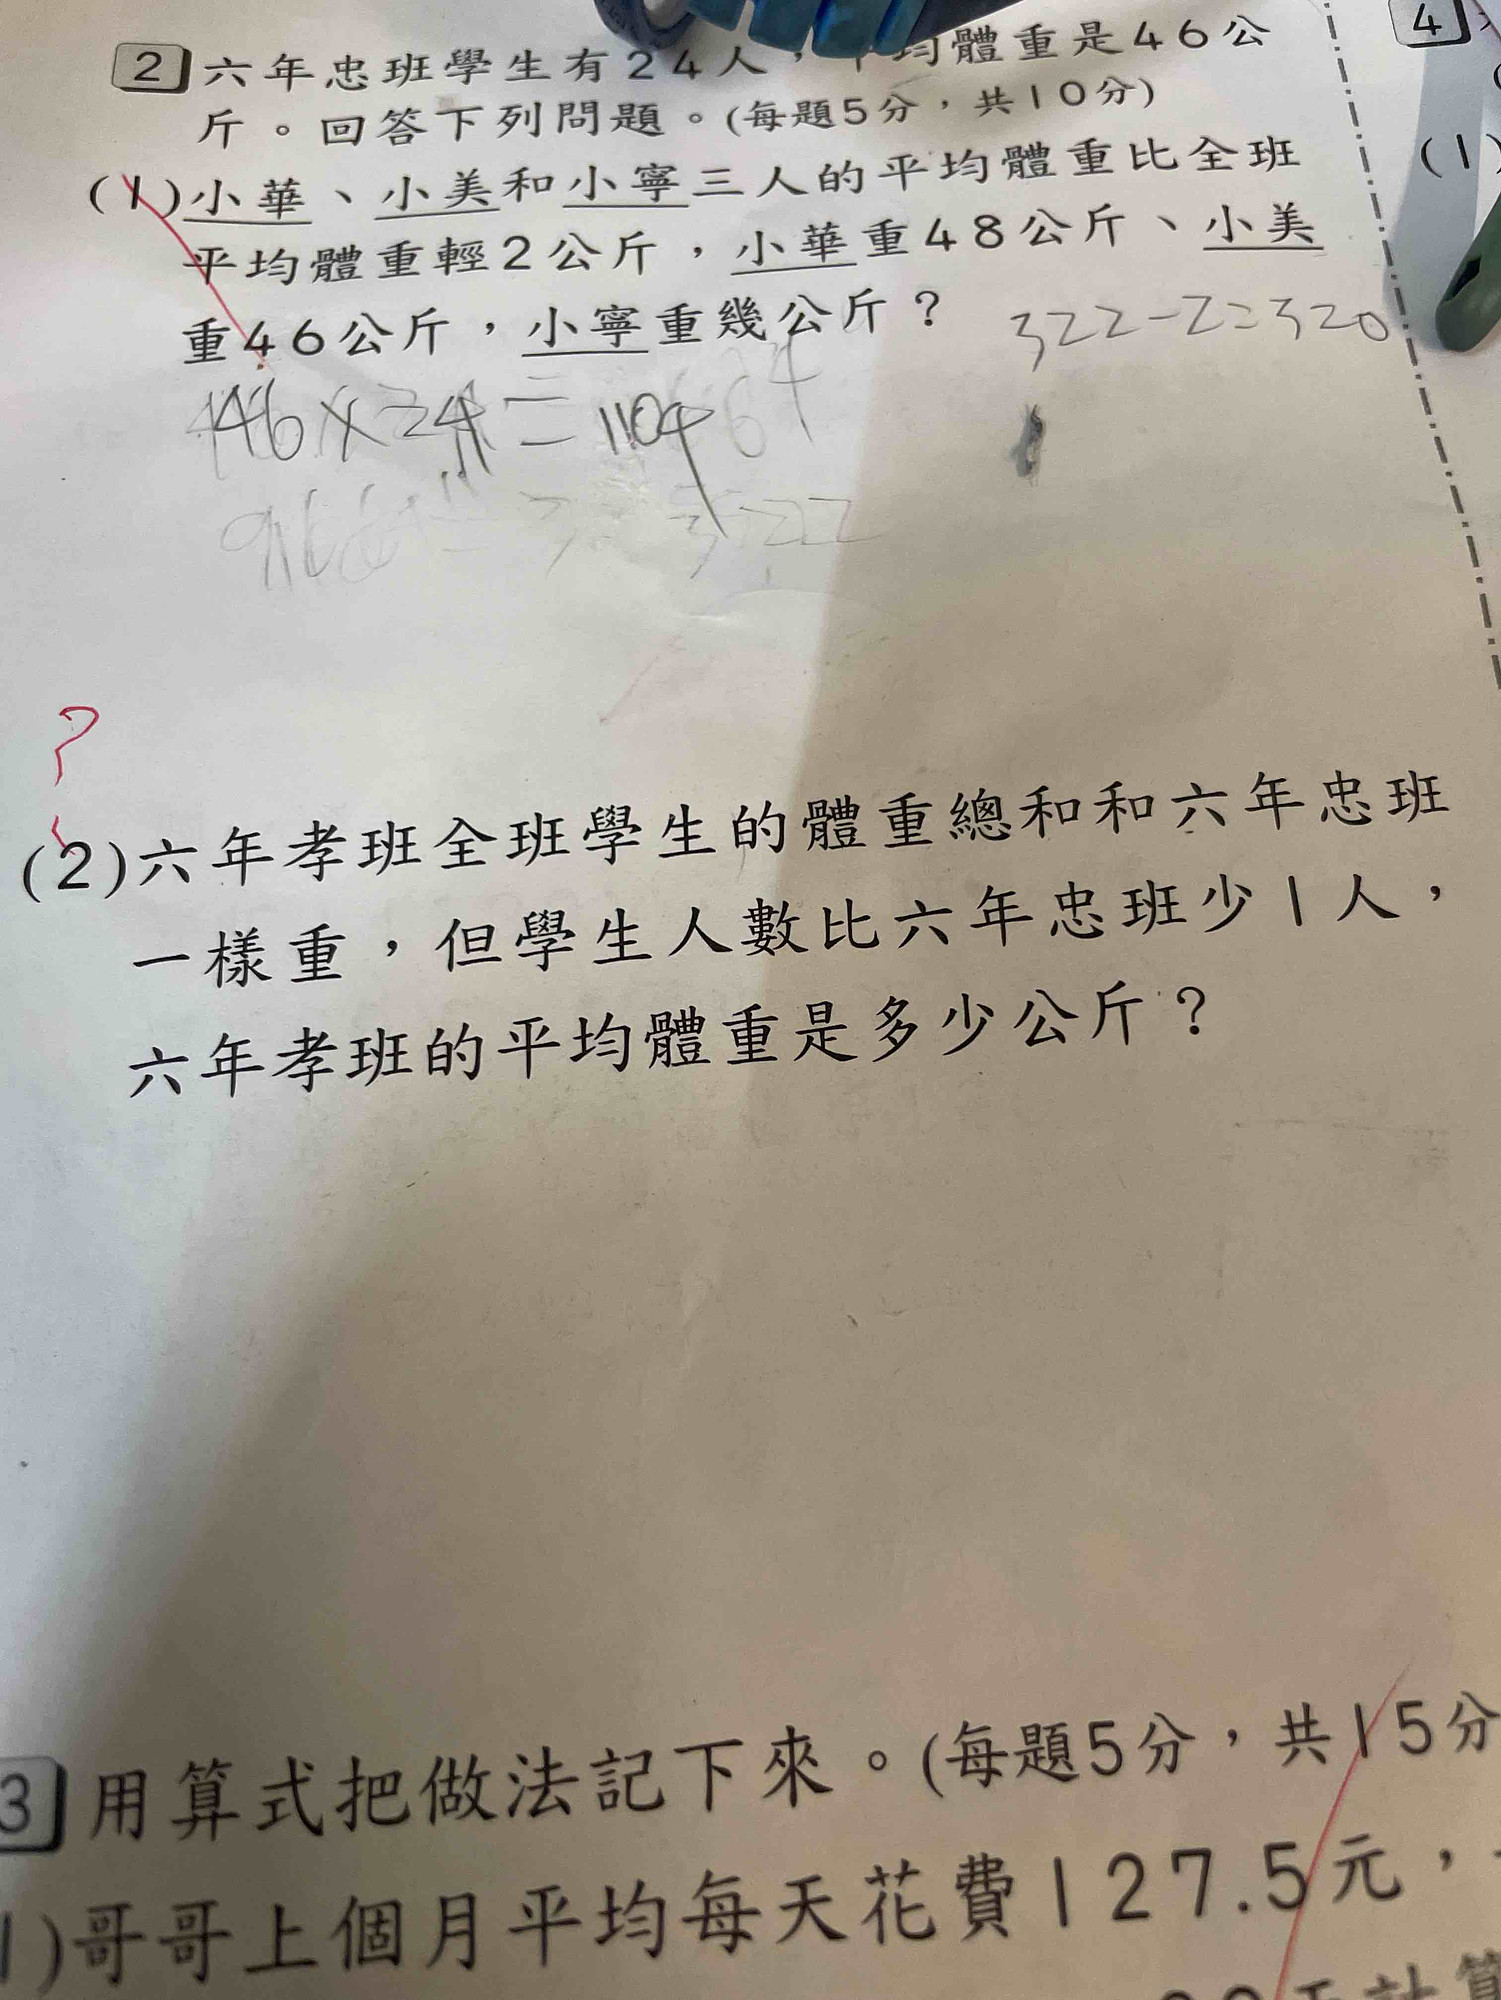 2 六年忠班學生有24人，平均體重是46公
斤。回答下列問題。(每題5分，共10分)
(1)小華、小美和小寧三人的平均體重比全班
平均體重輕2公斤，小華重48公斤、小美
重46公斤，小寧重幾公斤？
322-2=320
46×24=1104
?
(2)六年孝班全班學生的體重總和和六年忠班
一樣重，但學生人數比六年忠班少1人，
六年孝班的平均體重是多少公斤？
3 用算式把做法記下來。(每題5分，共15分
1)哥哥上個月平均每天花費127.5元，
4
(1)